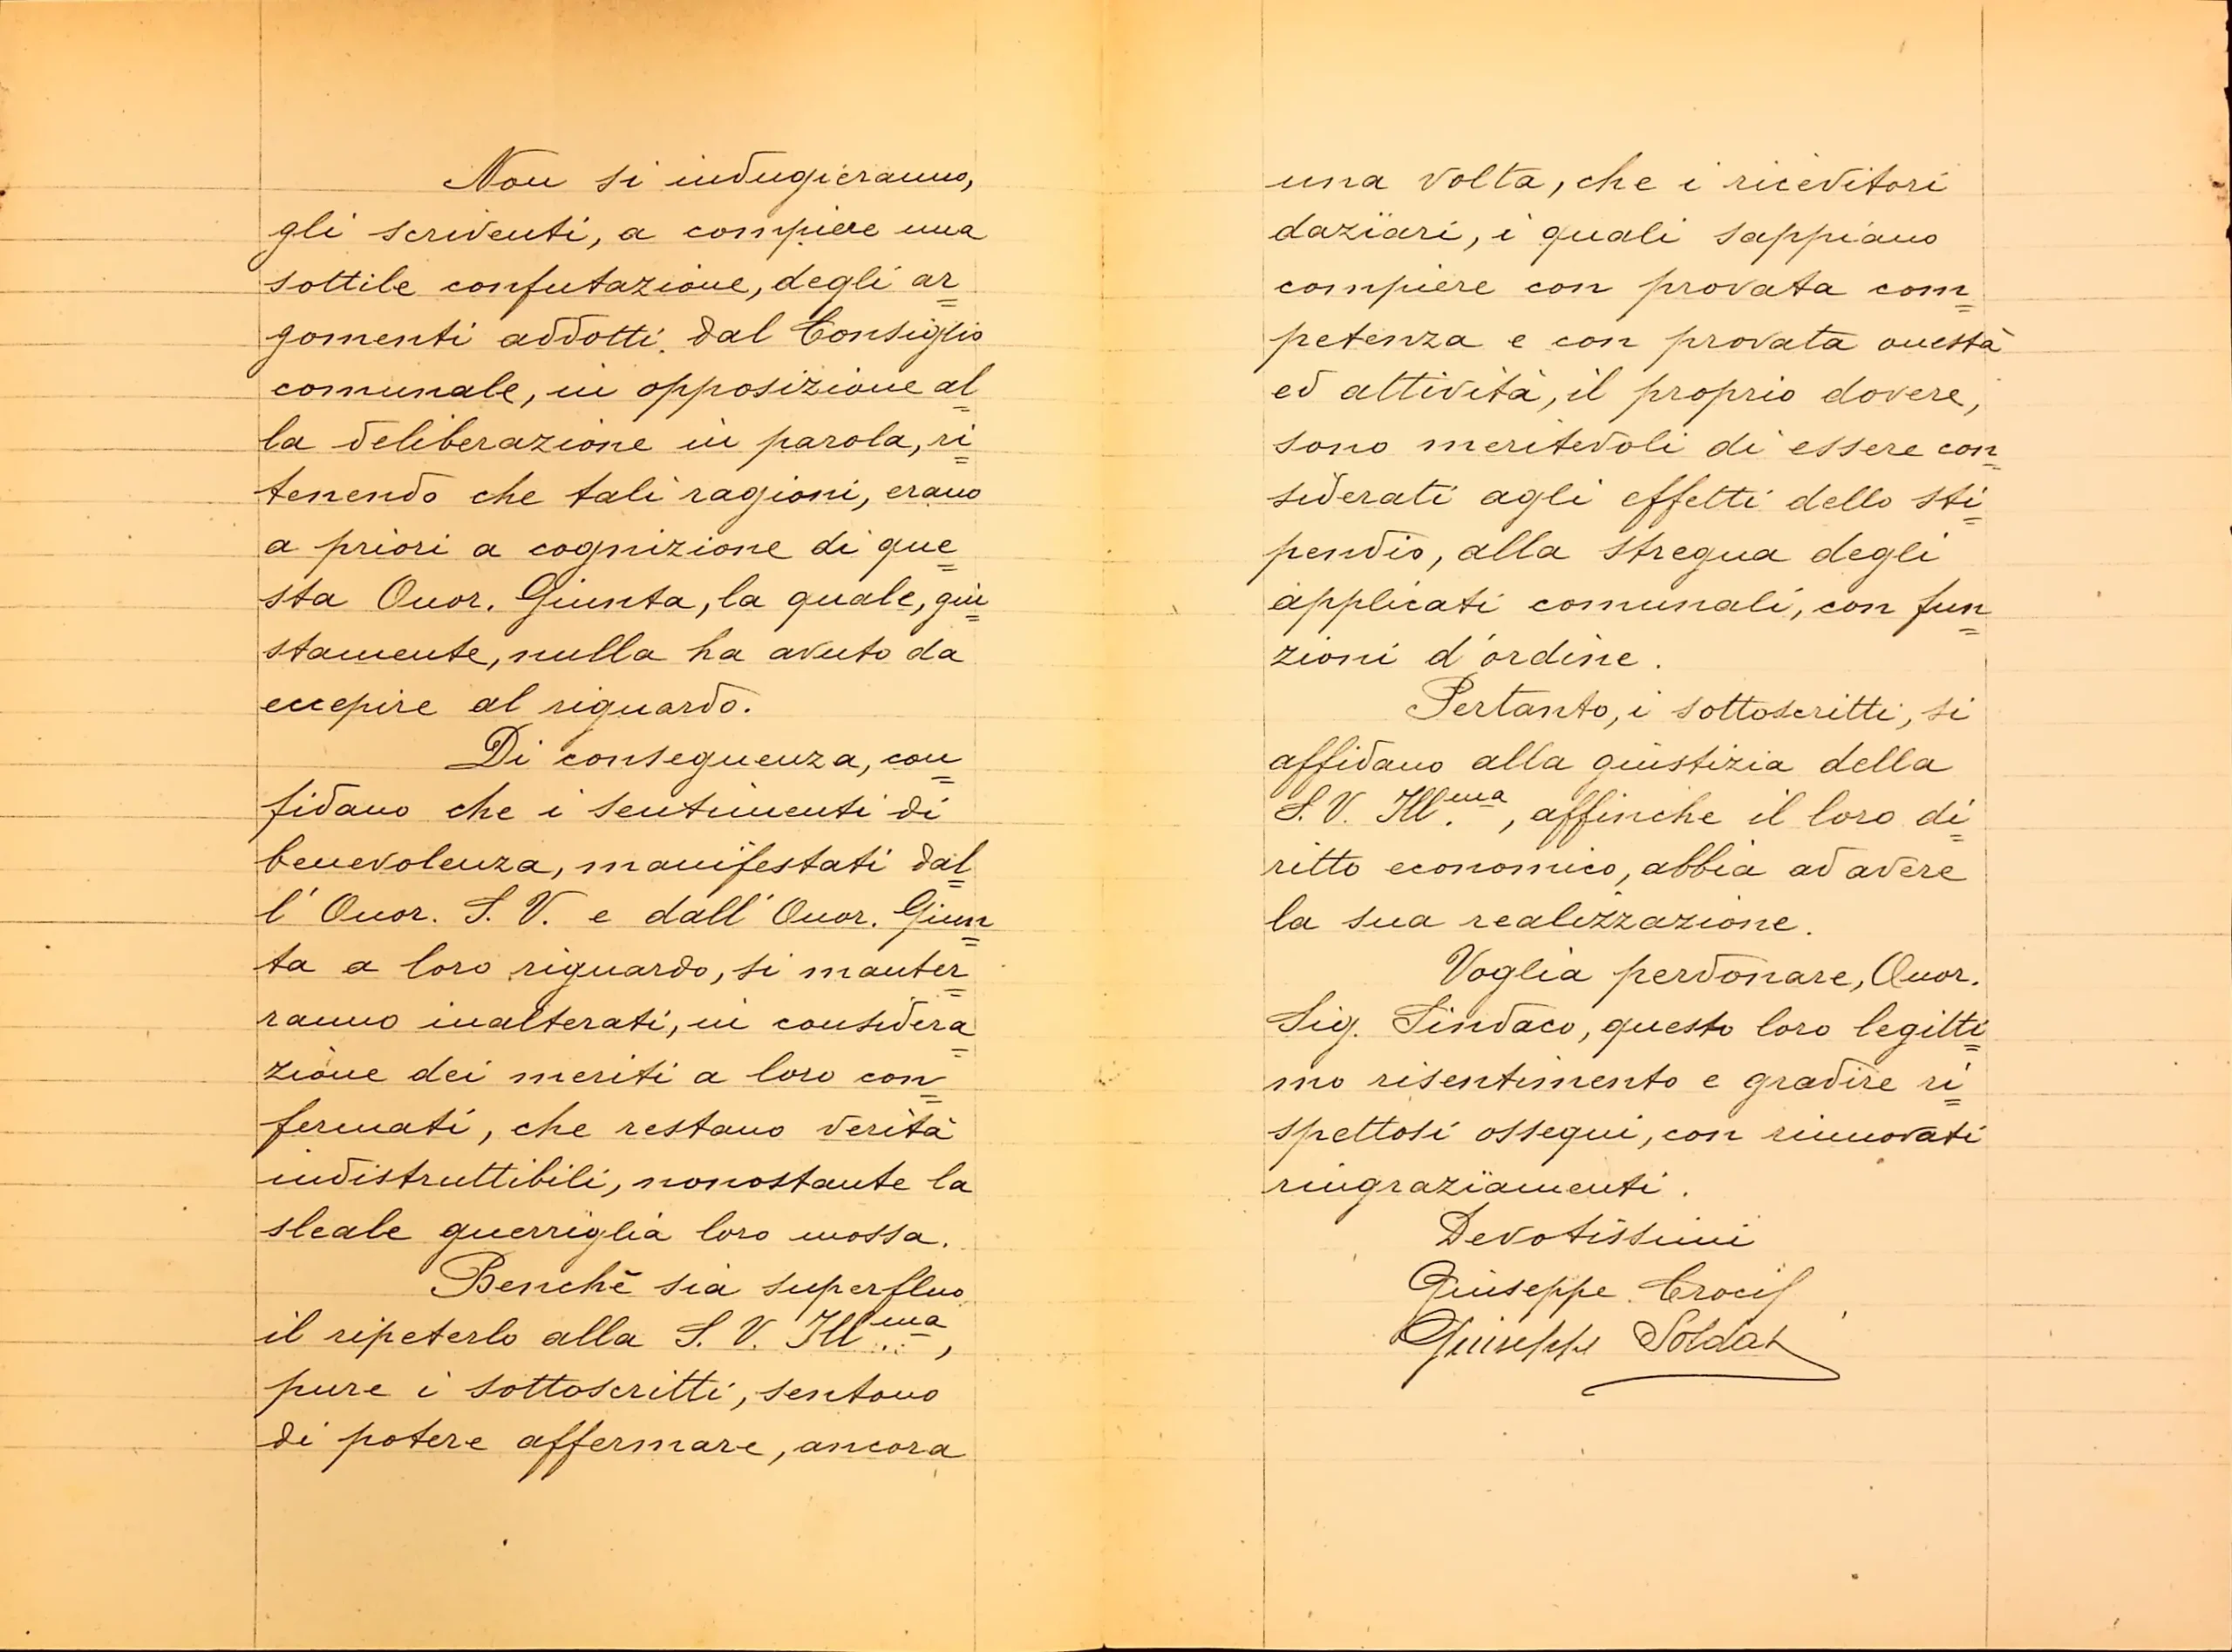 Non si indugieranno,
gli scriventi, a compiere una
sottile confutazione, degli ar=
gomenti addotti dal Consiglio
comunale, in opposizione al=
la deliberazione in parola, ri=
tenendo che tali ragioni, erano
a priori a cognizione di que=
sta Onor. Giunta, la quale, giu=
stamente, nulla ha avuto da
eccepire al riguardo.
Di conseguenza, con=
fidano che i sentimenti di
benevolenza, manifestati dal=
l' Onor. S. V. e dall' Onor. Giun=
ta a loro riguardo, si manter=
ranno inalterati, in considera=
zione dei meriti a loro con=
fermati, che restano verità
indistruttibili, nonostante la
sleale guerriglia loro mossa.
Benchè sia superfluo
il ripeterlo alla S. V. Ill.ma,
pure i sottoscritti, sentono
di potere affermare, ancora
una volta, che i ricevitori
daziari, i quali sappiano
compiere con provata com=
petenza e con provata onestà
ed attività, il proprio dovere,
sono meritevoli di essere con=
siderati agli effetti dello sti=
pendio, alla stregua degli
applicati comunali, con fun=
zioni d'ordine.
Pertanto, i sottoscritti, si
affidano alla giustizia della
S. V. Ill.ma, affinche il loro di=
ritto economico, abbia ad avere
la sua realizzazione.
Voglia perdonare, Onor.
Sig. Sindaco, questo loro legitti=
mo risentimento e gradire ri=
spettosi ossequi, con rinnovati
ringraziamenti.
Devotissimi
Giuseppe
Giuseppe